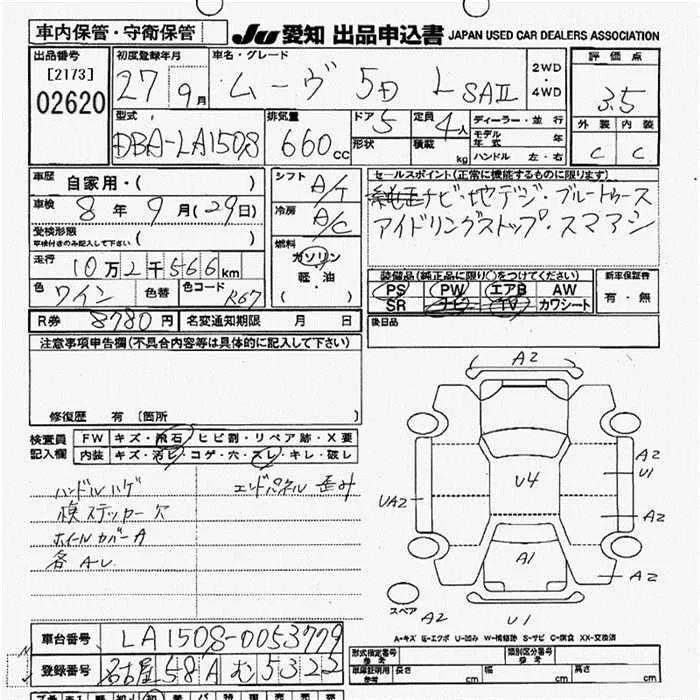 車内保管・守衛保管 JU 愛知 出品申込書 JAPAN USED CAR DEALERS ASSOCIATION
出品番号 初度登録年月 車名・グレード 評価点
[2173] 27年 9月 ムーヴ 5D L SAⅡ 2WD・4WD 3.5
02620 型式 排気量 ドア 5 定員 4人 ディーラー・並行 外装 内装
DBA-LA150S 660cc 形状 積載 kg モデル年式 年 C C
ハンドル 左・右
車歴 自家用・( ) シフト A/T セールスポイント(正常に機能するものに限ります)
車検 8年 9月 (29日) 冷房 A/C 純正ナビ・地デジ・ブルートゥース
受検形態 アイドリングストップ・スマアシ
車検付きのみ記入して下さい ( ) 燃料
走行 10万2千566km ガソリン 装備品(純正品に限り○をつけてください) 新車保証書
軽・油 PS PW エアB AW 有・無
色 ワイン 色替 色コード R67 ( ) SR ナビ TV カワシート
R券 8780円 名変通知期限 月 日 後日品
注意事項申告欄(不具合内容等は具体的に記入して下さい)
A2
修復歴 有 [箇所 ]
検査員 FW キズ・飛石・ヒビ割・リペア跡・X要
記入欄 内装 キズ・汚ビ・コゲ・穴・スレ・キレ・破レ
A2
U1
ハンドルハゲ エンドパネル歪み U4
UA2
検ステッカー欠 A2
ホイールカバーA
各A-U A1
A2
スペア A2 U1
A-キズ U-凹み W-補修跡 S-サビ C-腐食 XX-交換済
車台番号 LA150S-0053779
登録番号 名古屋 58A む 5322
型式指定番号 参考 類別区分番号 参考
車庫証明用 参考 長さ cm 幅 cm 高さ cm